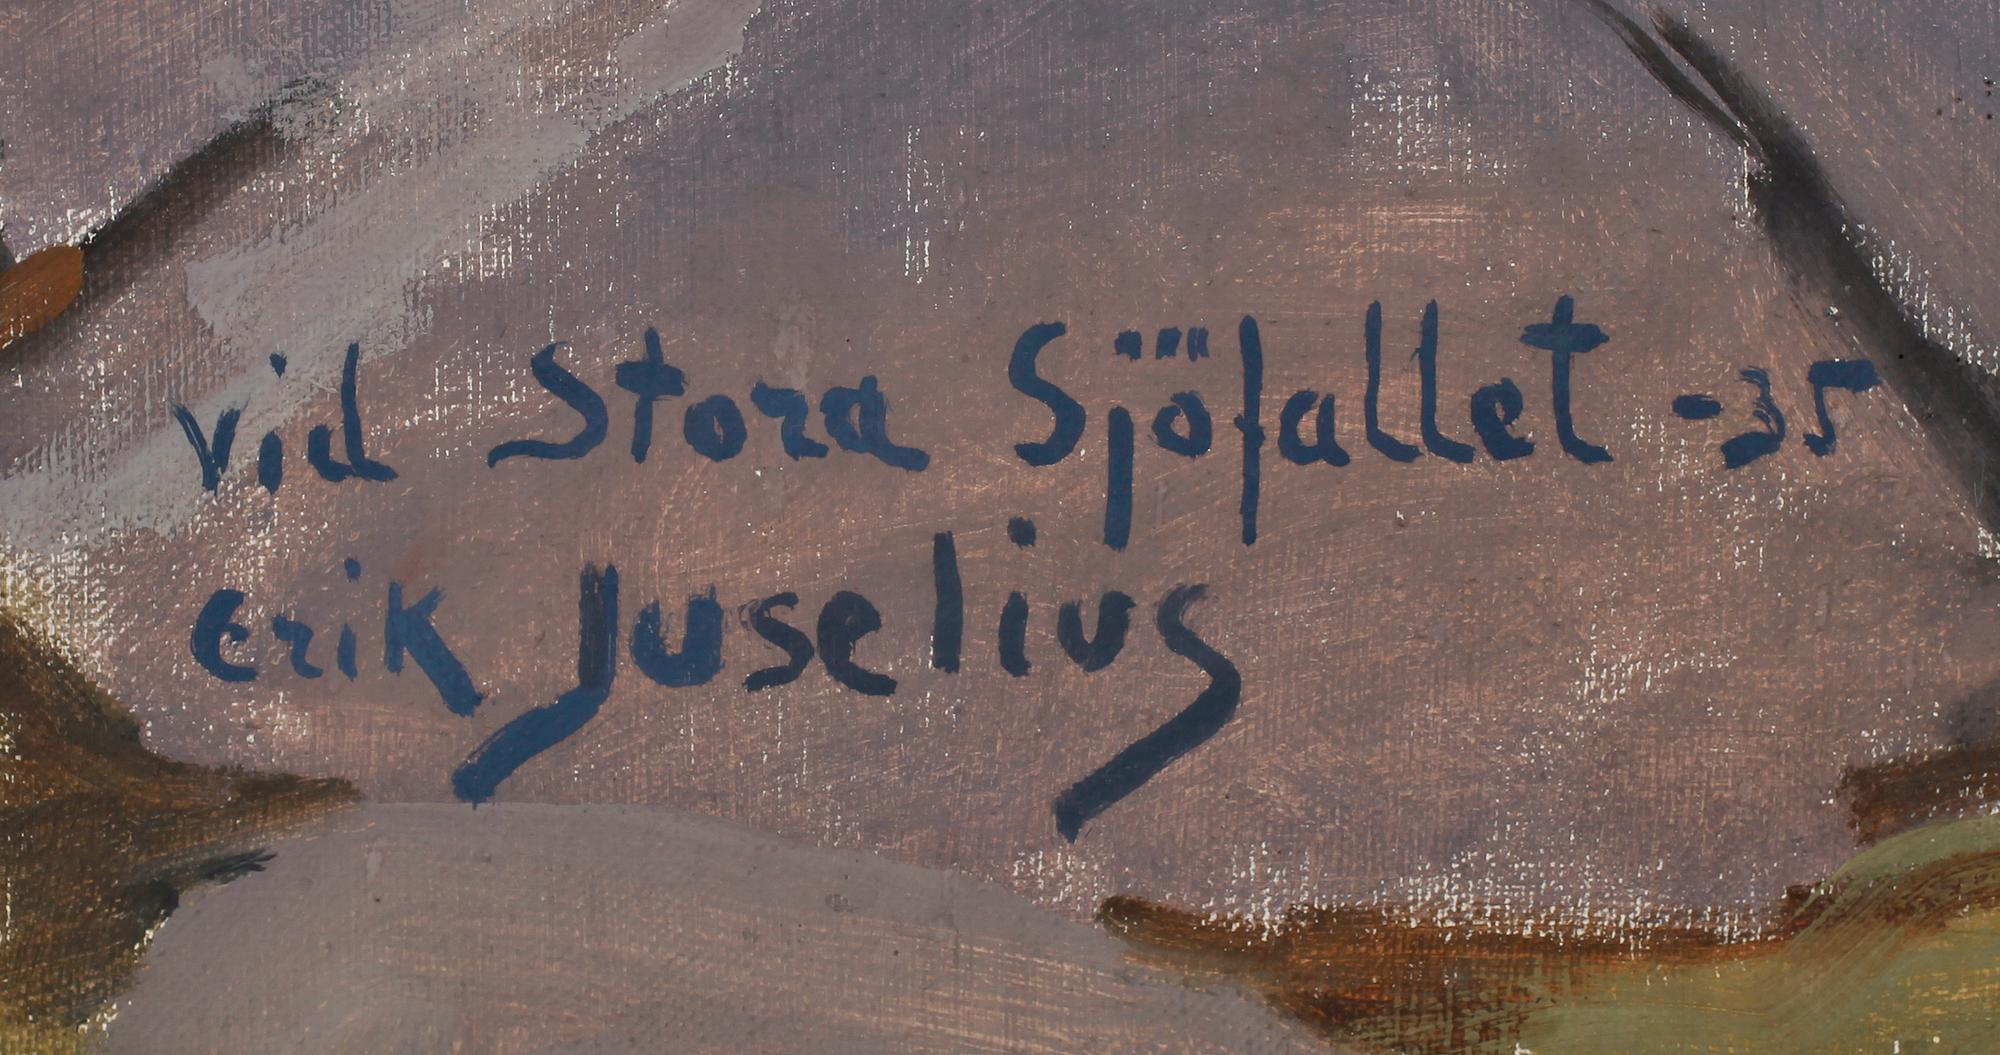 vid Stora Sjöfallet -35
erik Juselius